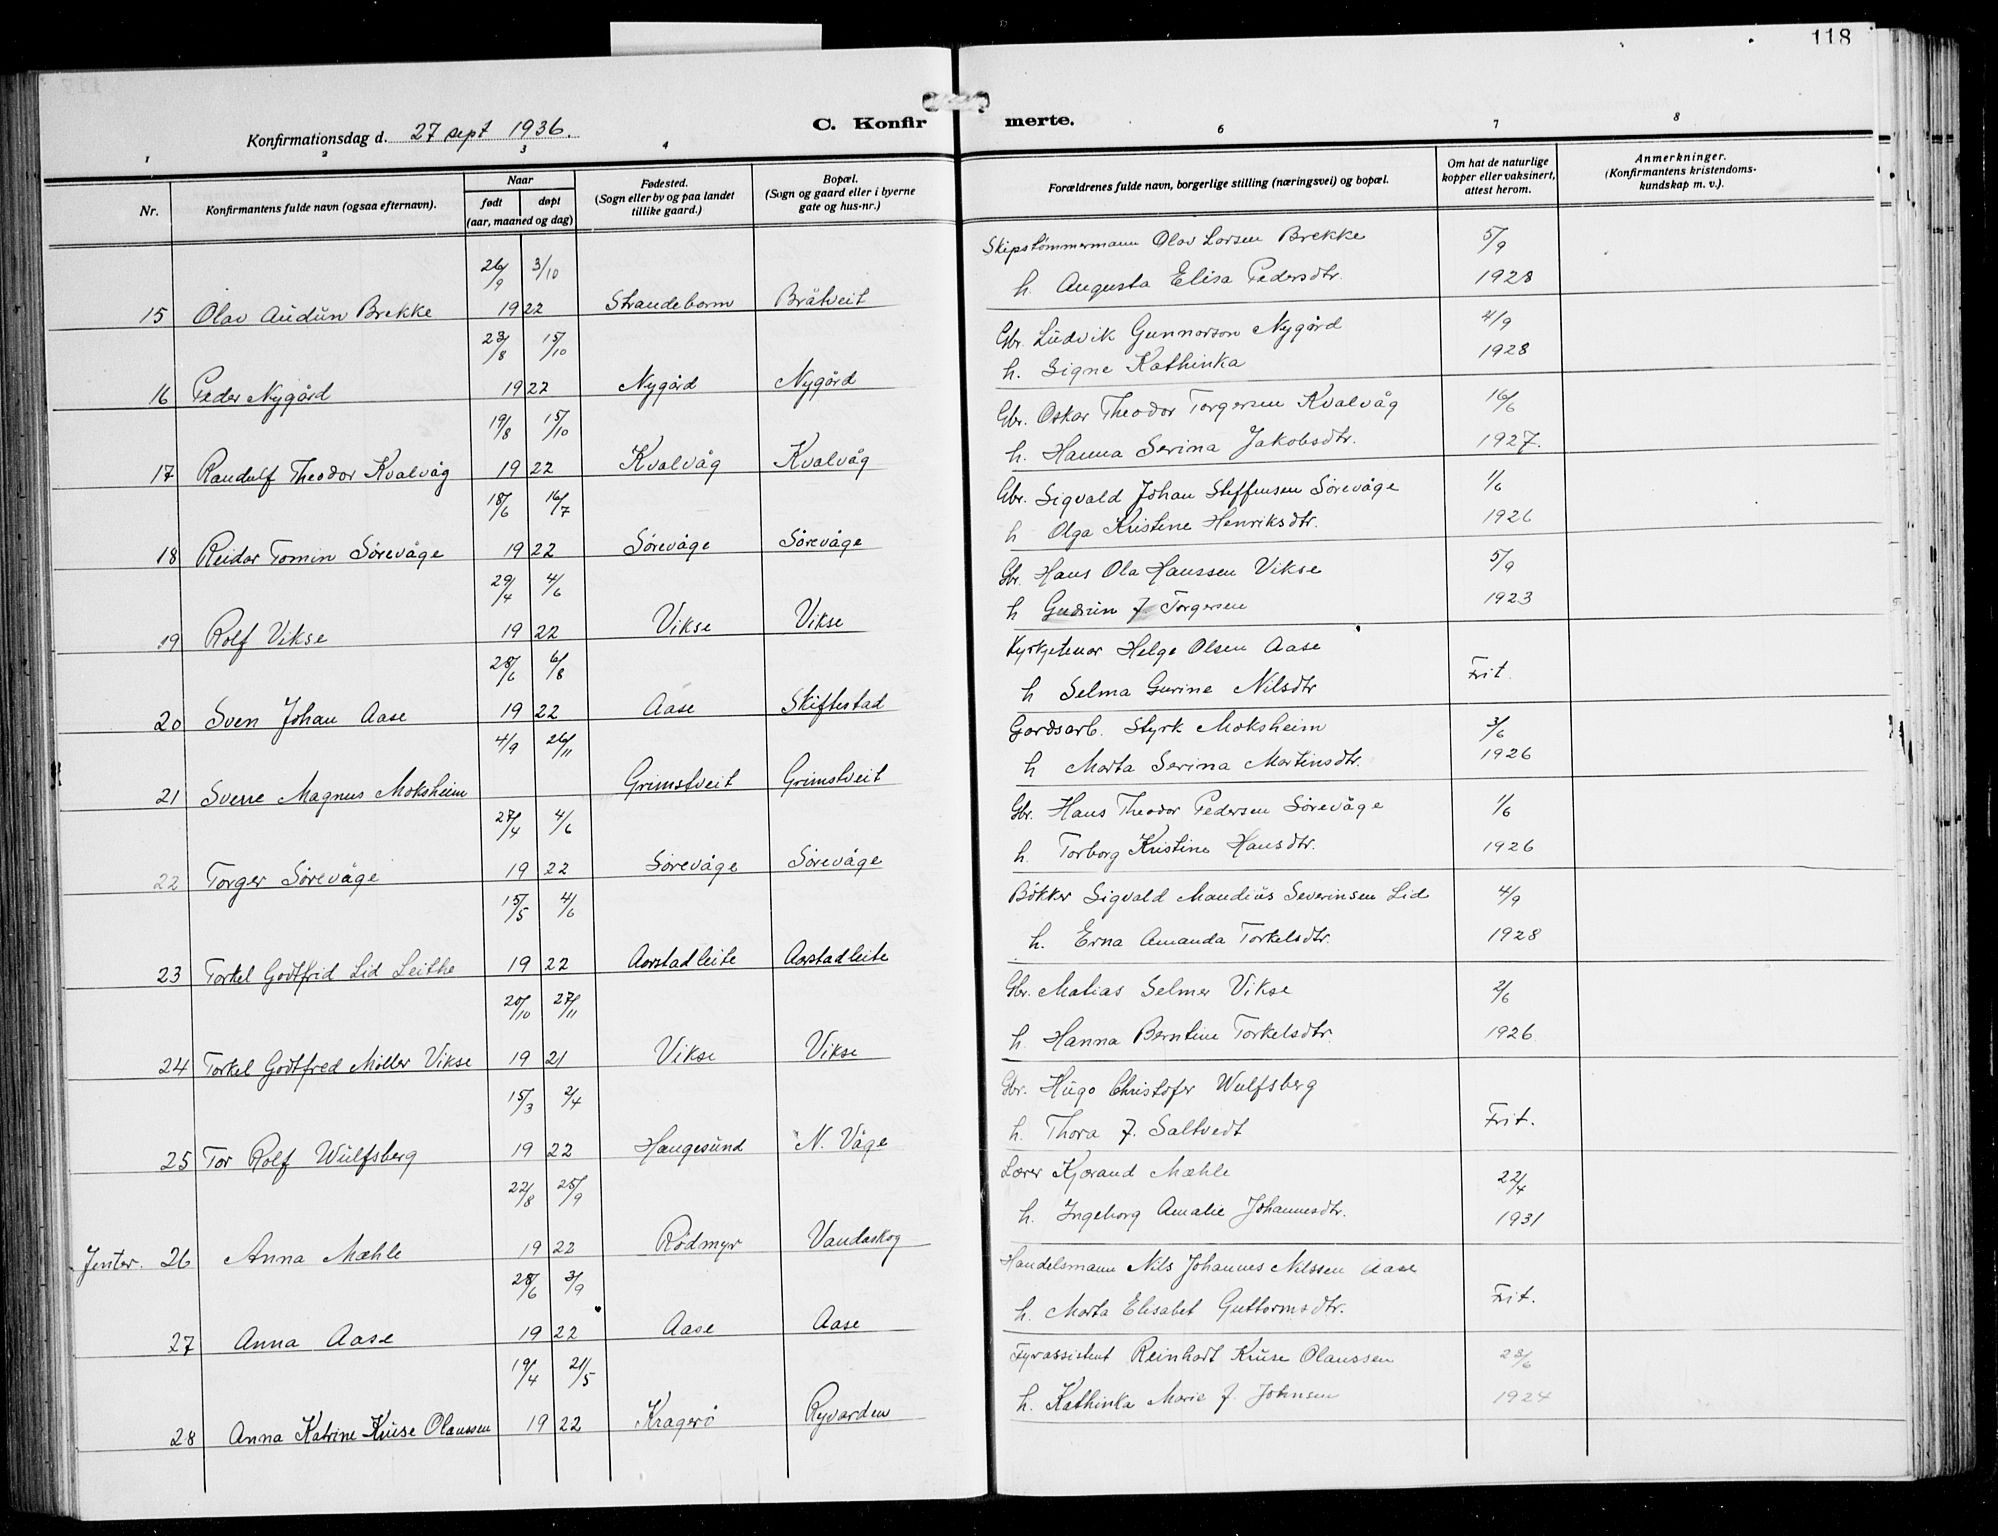 118
Konfirmationsdag d. 27 sept 1936.
C. Konfir merte.
1 2 3 4 6 7 8
Nr.
Konfirmantens fulde navn (ogsaa efternavn).
Naar
født døpt
(aar, maaned og dag)
Fødested.
(Sogn eller by og paa landet
tillike gaard.)
Bopæl.
(Sogn og gaard eller i byerne
gate og hus-nr.)
Forældrenes fulde navn, borgerlige stilling (næringsvei) og bopæl.
Om hat de naturlige
kopper eller vaksinert,
attest herom.
Anmerkninger.
(Konfirmantens kristendoms-
kundskap m. v.).
26/9 3/10 Skipstømmermann Olav Larsen Brekke 5/9
15 Olav Audun Brekke 1922 Strandebarm Bråtveit h. Augusta Elisa Pedersdtr. 1928
23/8 15/10 Gbr. Ludvik Gunnarson Nygård 4/9
16 Peder Nygård 1922 Nygård Nygård h. Signe Kathinka 1928
19/8 15/10 Gbr. Oskar Theodor Torgersen Kvalvåg 16/6
17 Randulf Theodor Kvalvåg 1922 Kvalvåg Kvalvåg h. Hanna Serina Jakobsdtr. 1927.
18/6 16/7 Gbr. Sigvald Johan Steffensen Sørevåge 1/6
18 Reidar Tomin Sørevåge 1922 Sørevåge Sørevåge h Olga Kristine Henriksdtr. 1926
29/4 4/6 Gbr. Hans Ola Hanssen Vikse 5/9
19 Rolf Vikse 1922 Vikse Vikse h Gudrun f Torgersen 1923
28/6 6/8 Kyrkjetenar Helge Olsen Aase Frit.
20 Sven Johan Aase 1922 Aase Skiftestad h Selma Gurine Nilsdtr
4/9 26/11 Gardsarb. Styrk Moksheim 3/6
21 Sverre Magnus Moksheim Grimstveit Grimstveit h Marta Serina Martinsdtr. 1926
27/4 4/6 Gbr. Hans Theodor Pedersen Sørevåge 1/6
22 Torger Sørevåge 1922 Sørevåge Sørevåge h. Torborg Kristine Hansdtr. 1926
15/5 4/6 Bøkker Sigvald Mandius Severinsen Lid 4/9
23 Torkel Godtfrid Lid Leithe 1922 Aarstadleite Aarstadleite h. Erna Amanda Torkelsdtr. 1928
20/10 27/11 Gbr. Matias Selmer Vikse 2/6
24 Torkel Godtfred Møller Vikse 1921 Vikse Vikse h. Hanna Berntine Torkelsdtr. 1926.
15/3 2/4 Gbr. Hugo Christofer Wulfsberg Frit.
25 Tor Rolf Wulfsberg 1922 Haugesund N. Våge h. Thora f. Saltvedt
22/8 25/9 Lærer Kjørand Mæhle 22/4
Jenter. 26 Anna Mæhle 1922 Rødmyr Vandaskog h. Ingeborg Amalie Johannesdtr. 1931
28/6 3/9 Handelsmann Nils Johannes Nilssen Aase Frit.
27 Anna Aase 1922 Aase Aase h. Marta Elisabet Guttormsdtr.
19/4 21/5 Fyrassistent Reinhart Kruse Olaussen 23/6
28 Anna Katrine Kruse Olaussen 1922 Kragerø Ryvarden h. Kathinka Marie f. Johnsen 1924